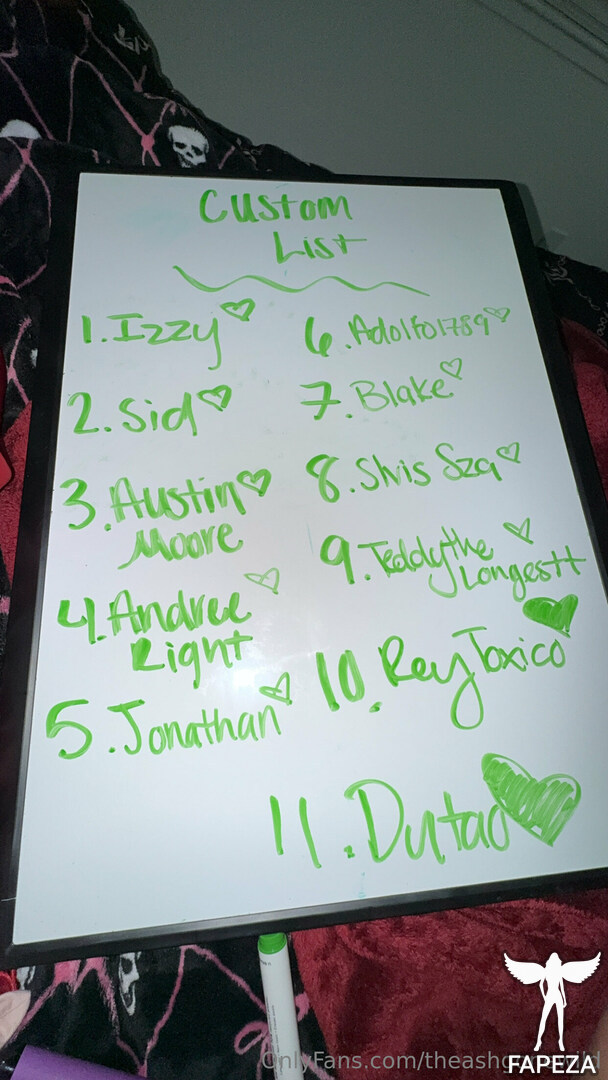 Custom
List
1. Izzy
2. Sid
3. Austin
Moore
4. Andree
Right
5. Jonathan
6. Adolfo1789
7. Blake
8. Slvis Sza
9. Teddythe
Longestt
10. Rey Toxico
11. Dutao
FAPEZA